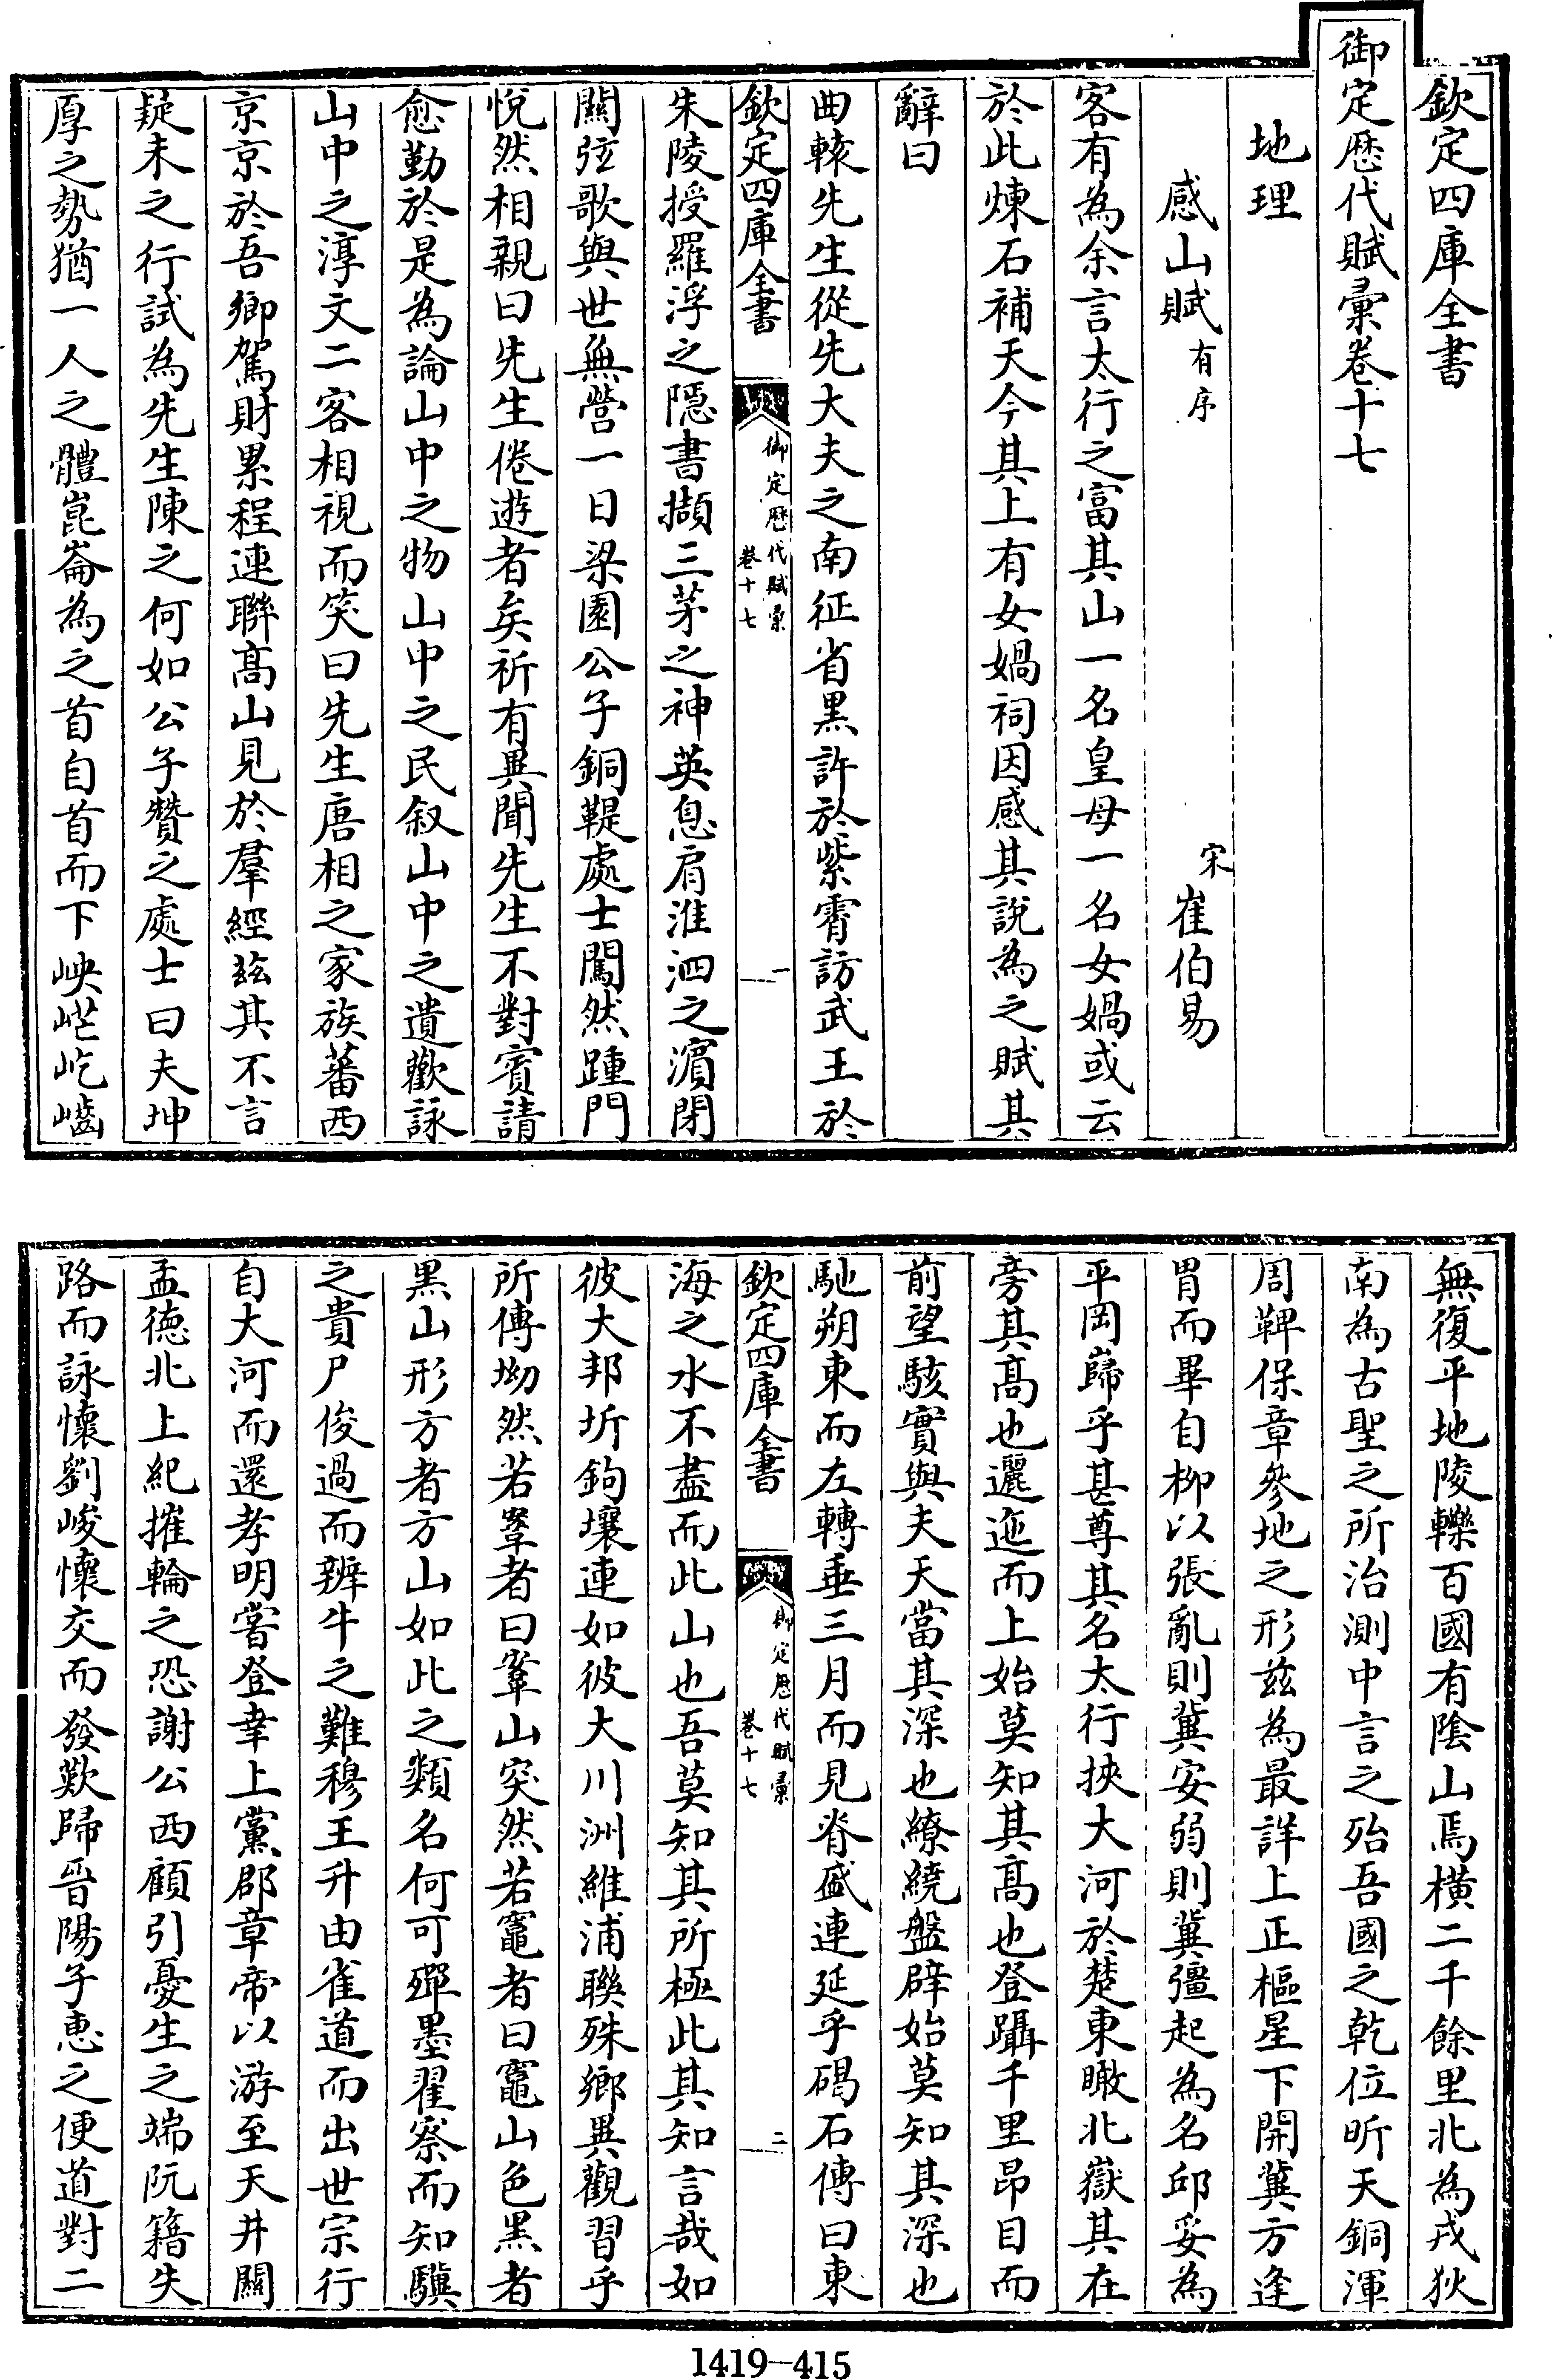 欽定四庫全書
御定歷代賦彙卷十七
地理
感山賦有序 宋崔伯易
客有為余言太行之富其山一名皇母一名女媧或云
於此煉石補天今其上有女媧祠因感其說為之賦其
辭曰
曲轅先生從先大夫之南征省黑許於紫霄訪武王於
欽定四庫全書 御定歷代賦彙 卷十七 一
朱陵授羅浮之隱書擷三茅之神英息肩淮泗之濵閉
關弦歌與世無營一日梁園公子銅鞮處士闖然踵門
悅然相親曰先生倦遊者矣祈有異聞先生不對賓請
愈勤於是為論山中之物山中之民叙山中之遺歡詠
山中之淳文二客相視而笑曰先生唐相之家族蕃西
京京於吾鄉駕財累程連聯高山見於羣經茲其不言
疑未之行試為先生陳之何如公子贊之處士曰夫坤
厚之勢猶一人之體崑崙為之首自首而下岟㟐屹㠢
無復平地陵轢百國有陰山焉橫二千餘里北為戎狄
南為古聖之所治測中言之殆吾國之乾位昕天銅渾
周髀保章參地之形茲為最詳上正樞星下開冀方逢
胃而畢自柳以張亂則冀安弱則冀彊起為名邱妥為
平岡巋乎甚尊其名太行挾大河於楚東瞰北嶽其在
旁其高也邐迤而上始莫知其高也登躡千里昂目而
前望駭實與夫天當其深也繚繞盤辟始莫知其深也
馳朔東而左轉垂三月而見脊盛連延乎碣石傳曰東
欽定四庫全書 御定歷代賦彙 卷十七 二
海之水不盡而此山也吾莫知其所極此其知言哉如
彼大邦圻鉤壤連如彼大川洲維浦聯殊鄉異觀習乎
所傳坳然若鞏者曰鞏山突然若竈者曰竈山色黑者
黑山形方者方山如此之類名何可殫墨翟察而知驥
之貴尸俊過而辨牛之難穆王升由雀道而出世宗行
自大河而還孝明嘗登幸上黨郡章帝以游至天井關
孟德北上紀摧輪之恐謝公西顧引憂生之端阮籍失
路而詠懷劉峻懷交而發歎歸晉陽子惠之便道對二
1419-415